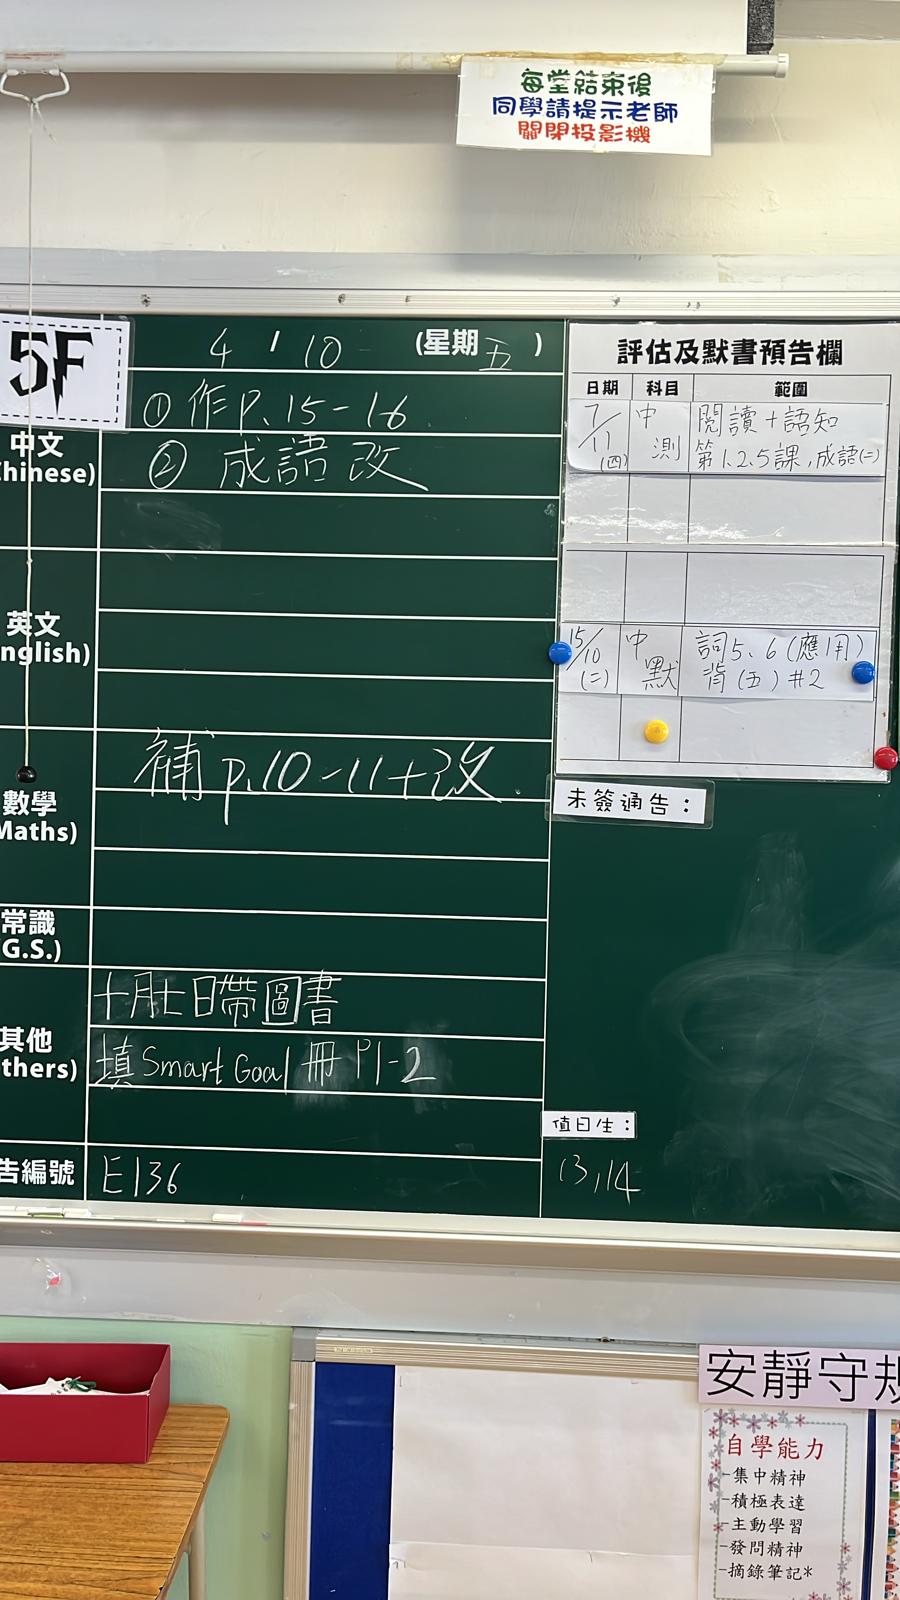 每堂結束後
同學請提示老師
關閉投影機
5F
4 / 10 (星期五)
中文
hinese)
① 作P.15-16
② 成語改
英文
nglish)
數學
Maths)
補 p.10-11+改
常識
G.S.)
其他
thers)
十月七日帶圖書
填 Smart Goal 冊 P1-2
告編號
E136
評估及默書預告欄
日期 科目 範圍
7/11 (四) 中測 閱讀+語知
第1.2.5課,成語(二)
15/10 (二) 中默 詞5、6(應用)
背(五)#2
未簽通告:
值日生:
13,14
安靜守規
自學能力
-集中精神
-積極表達
-主動學習
-發問精神
-摘錄筆記*